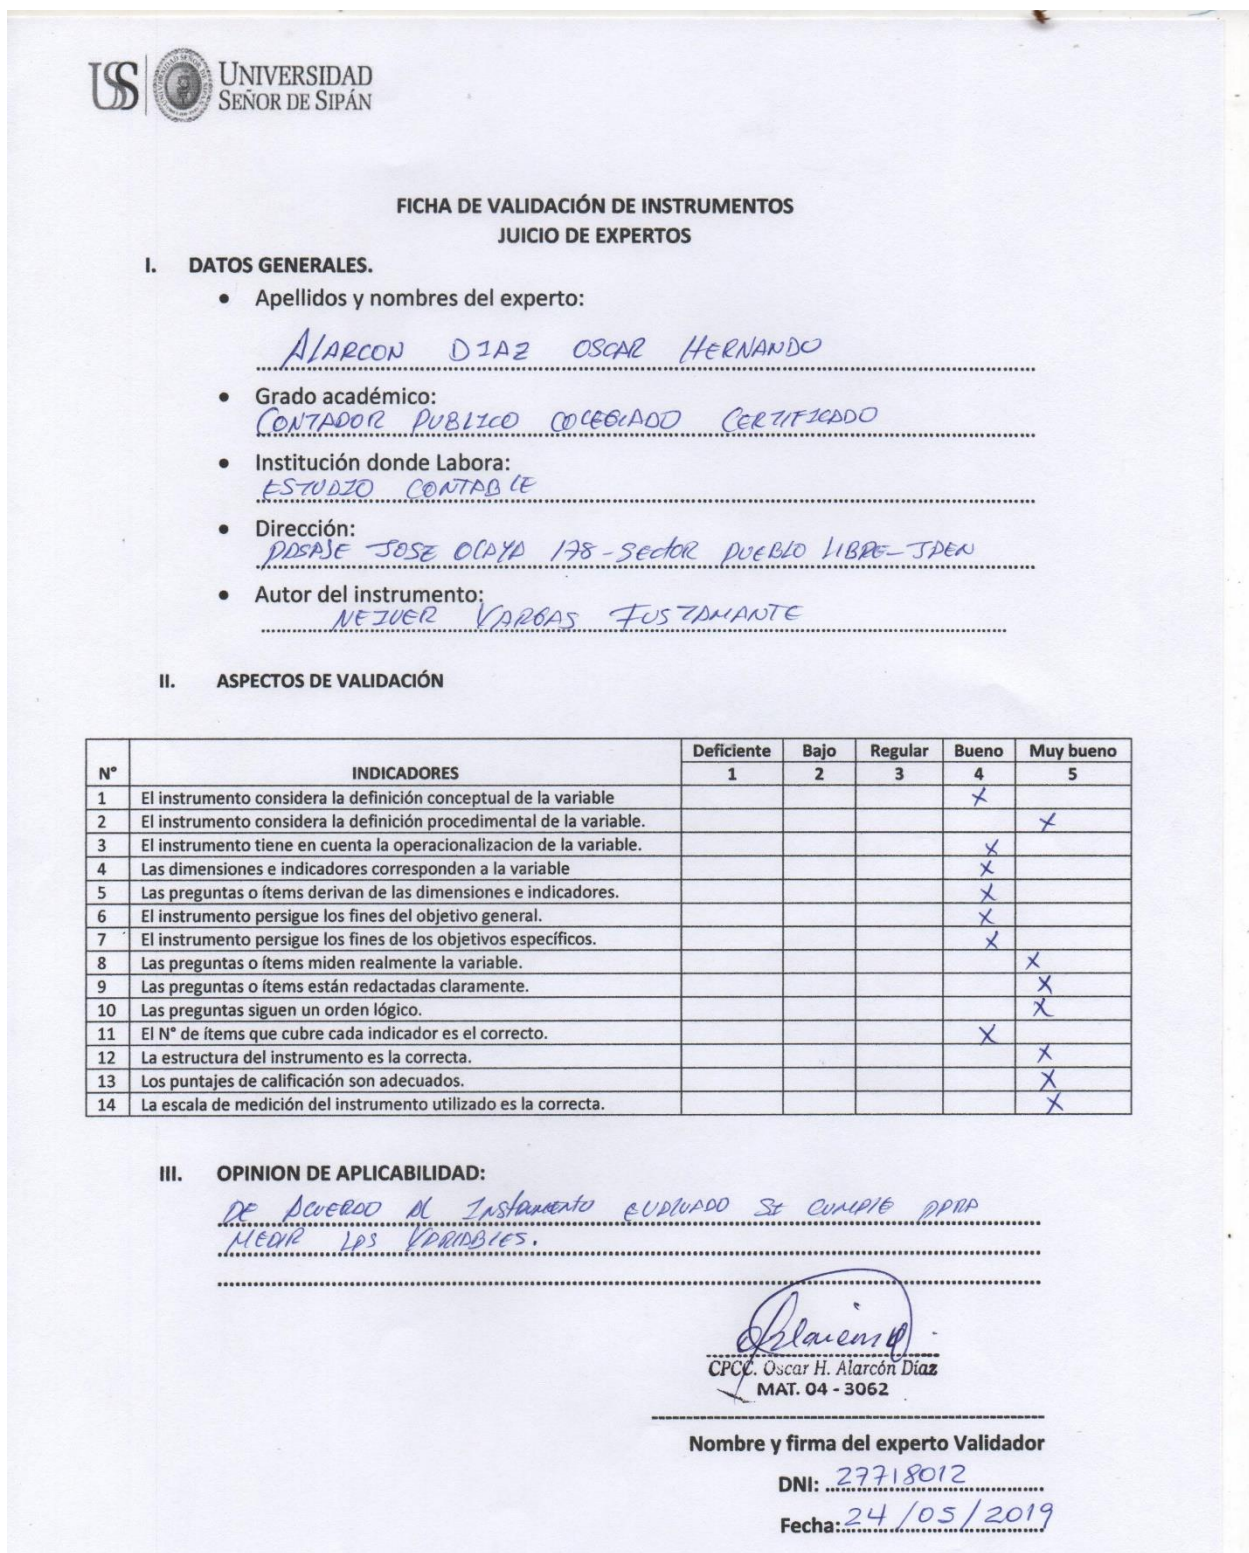 USS UNIVERSIDAD
SEÑOR DE SIPÁN
FICHA DE VALIDACIÓN DE INSTRUMENTOS
JUICIO DE EXPERTOS
I. DATOS GENERALES.
• Apellidos y nombres del experto:
ALARCON DIAZ OSCAR HERNANDO
• Grado académico:
CONTADOR PUBLICO COLEGIADO CERTIFICADO
• Institución donde Labora:
ESTUDIO CONTABLE
• Dirección:
PASAJE JOSE OLAYA 178 - SECTOR PUEBLO LIBRE - JAEN
• Autor del instrumento:
NEIVER VARGAS FUSTAMANTE
II. ASPECTOS DE VALIDACIÓN
Deficiente Bajo Regular Bueno Muy bueno
N° INDICADORES 1 2 3 4 5
1 El instrumento considera la definición conceptual de la variable X
2 El instrumento considera la definición procedimental de la variable. X
3 El instrumento tiene en cuenta la operacionalizacion de la variable. X
4 Las dimensiones e indicadores corresponden a la variable X
5 Las preguntas o ítems derivan de las dimensiones e indicadores. X
6 El instrumento persigue los fines del objetivo general. X
7 El instrumento persigue los fines de los objetivos específicos. X
8 Las preguntas o ítems miden realmente la variable. X
9 Las preguntas o ítems están redactadas claramente. X
10 Las preguntas siguen un orden lógico. X
11 El N° de ítems que cubre cada indicador es el correcto. X
12 La estructura del instrumento es la correcta. X
13 Los puntajes de calificación son adecuados. X
14 La escala de medición del instrumento utilizado es la correcta. X
III. OPINION DE APLICABILIDAD:
DE ACUERDO AL INSTRUMENTO EVALUADO SI CUMPLE PARA
MEDIR LAS VARIABLES.
CPCC. Oscar H. Alarcón Díaz
MAT. 04 - 3062
Nombre y firma del experto Validador
DNI: 27718012
Fecha: 24/05/2019